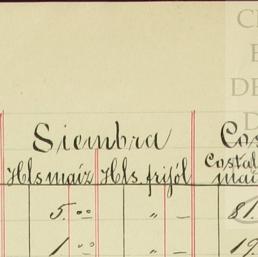 Siembra Cos
Hls maíz Hls. frijól Costal
maí
5.00 " — 81.
1.00 " — 19.